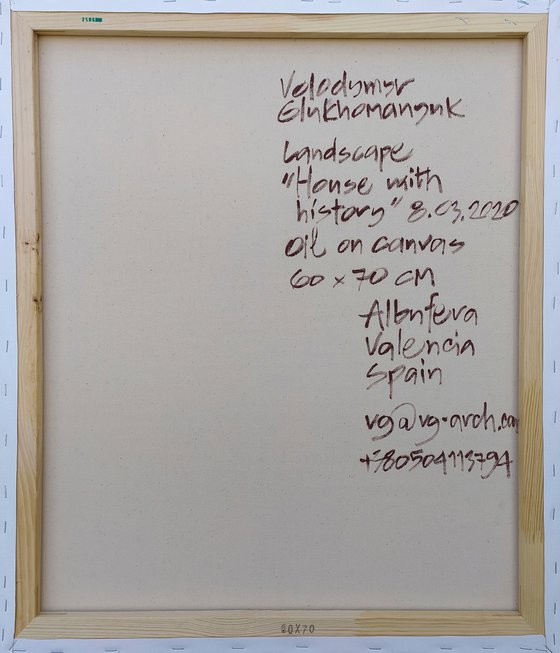 Volodymyr
Glukhomanyuk
Landscape
"House with
history" 8.03.2020
Oil on canvas
60 x 70 cm
Albufera
Valencia
Spain
vg@vg-arch.com
+380504113794
60X70